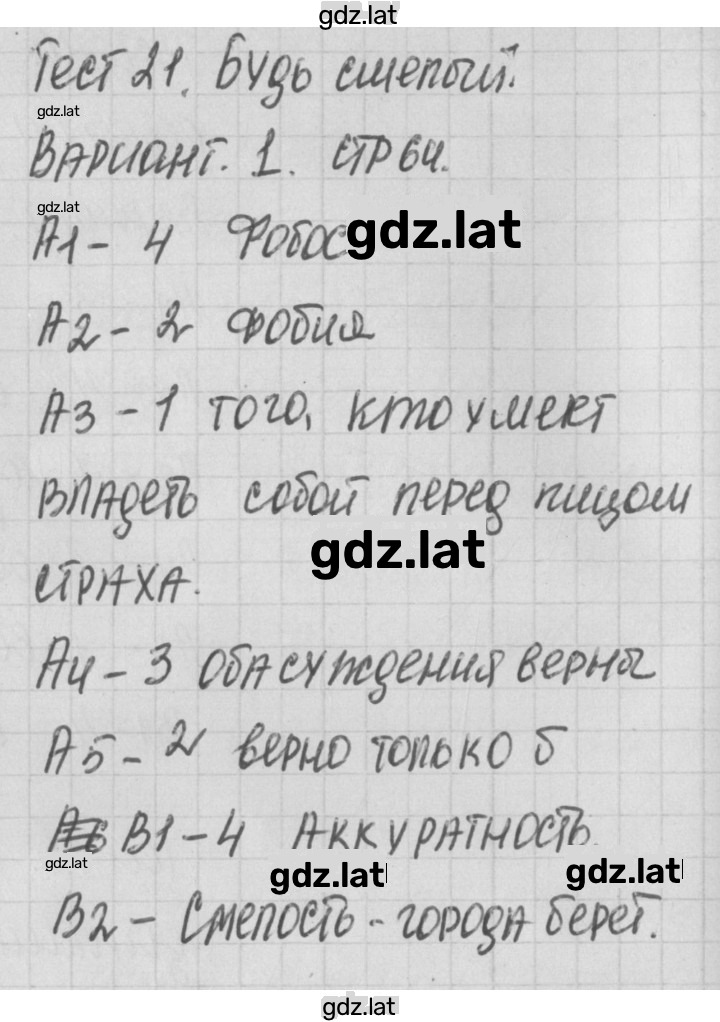 gdz.lat
Тест 21. Будь смелый.
gdz.lat
Вариант. 1. стр 64.
gdz.lat
А1 - 4 Фобос gdz.lat
А2 - 2 фобия
А3 - 1 того, кто умеет
владеть собой перед лицом
gdz.lat
страха.
А4 - 3 оба суждения верны
А5 - 2 верно только б
В1 - 4 Аккуратность
gdz.lat
gdz.lat gdz.lat
В2 - Смелость - города берет.
gdz.lat